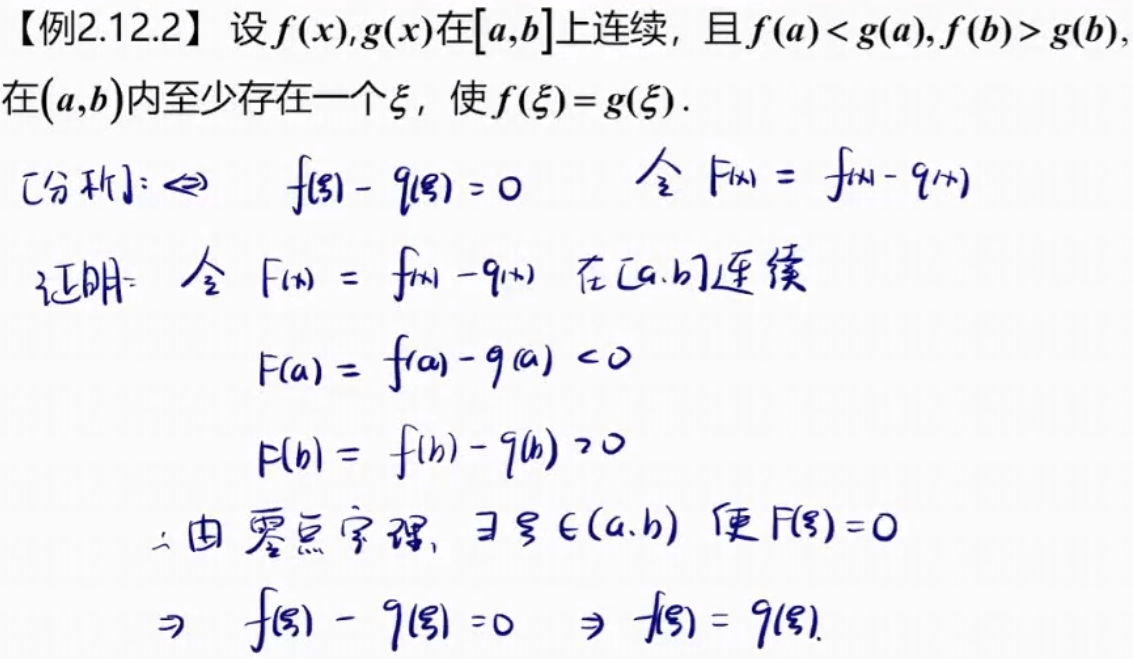 【例2.12.2】 设f(x),g(x)在[a,b]上连续，且f(a)<g(a),f(b)>g(b),
在(a,b)内至少存在一个ξ，使f(ξ)=g(ξ).
[分析]: ⇔ f(ξ) - g(ξ) = 0 令 F(x) = f(x) - g(x)
证明: 令 F(x) = f(x) - g(x) 在[a.b]连续
F(a) = f(a) - g(a) < 0
F(b) = f(b) - g(b) > 0
∴ 由 零点定理, ∃ ξ ∈ (a.b) 使 F(ξ) = 0
⇒ f(ξ) - g(ξ) = 0 ⇒ f(ξ) = g(ξ).